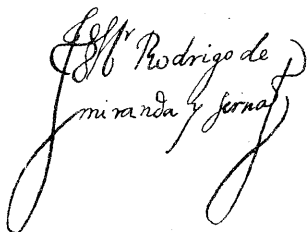 Rodrigo de
miranda y serna